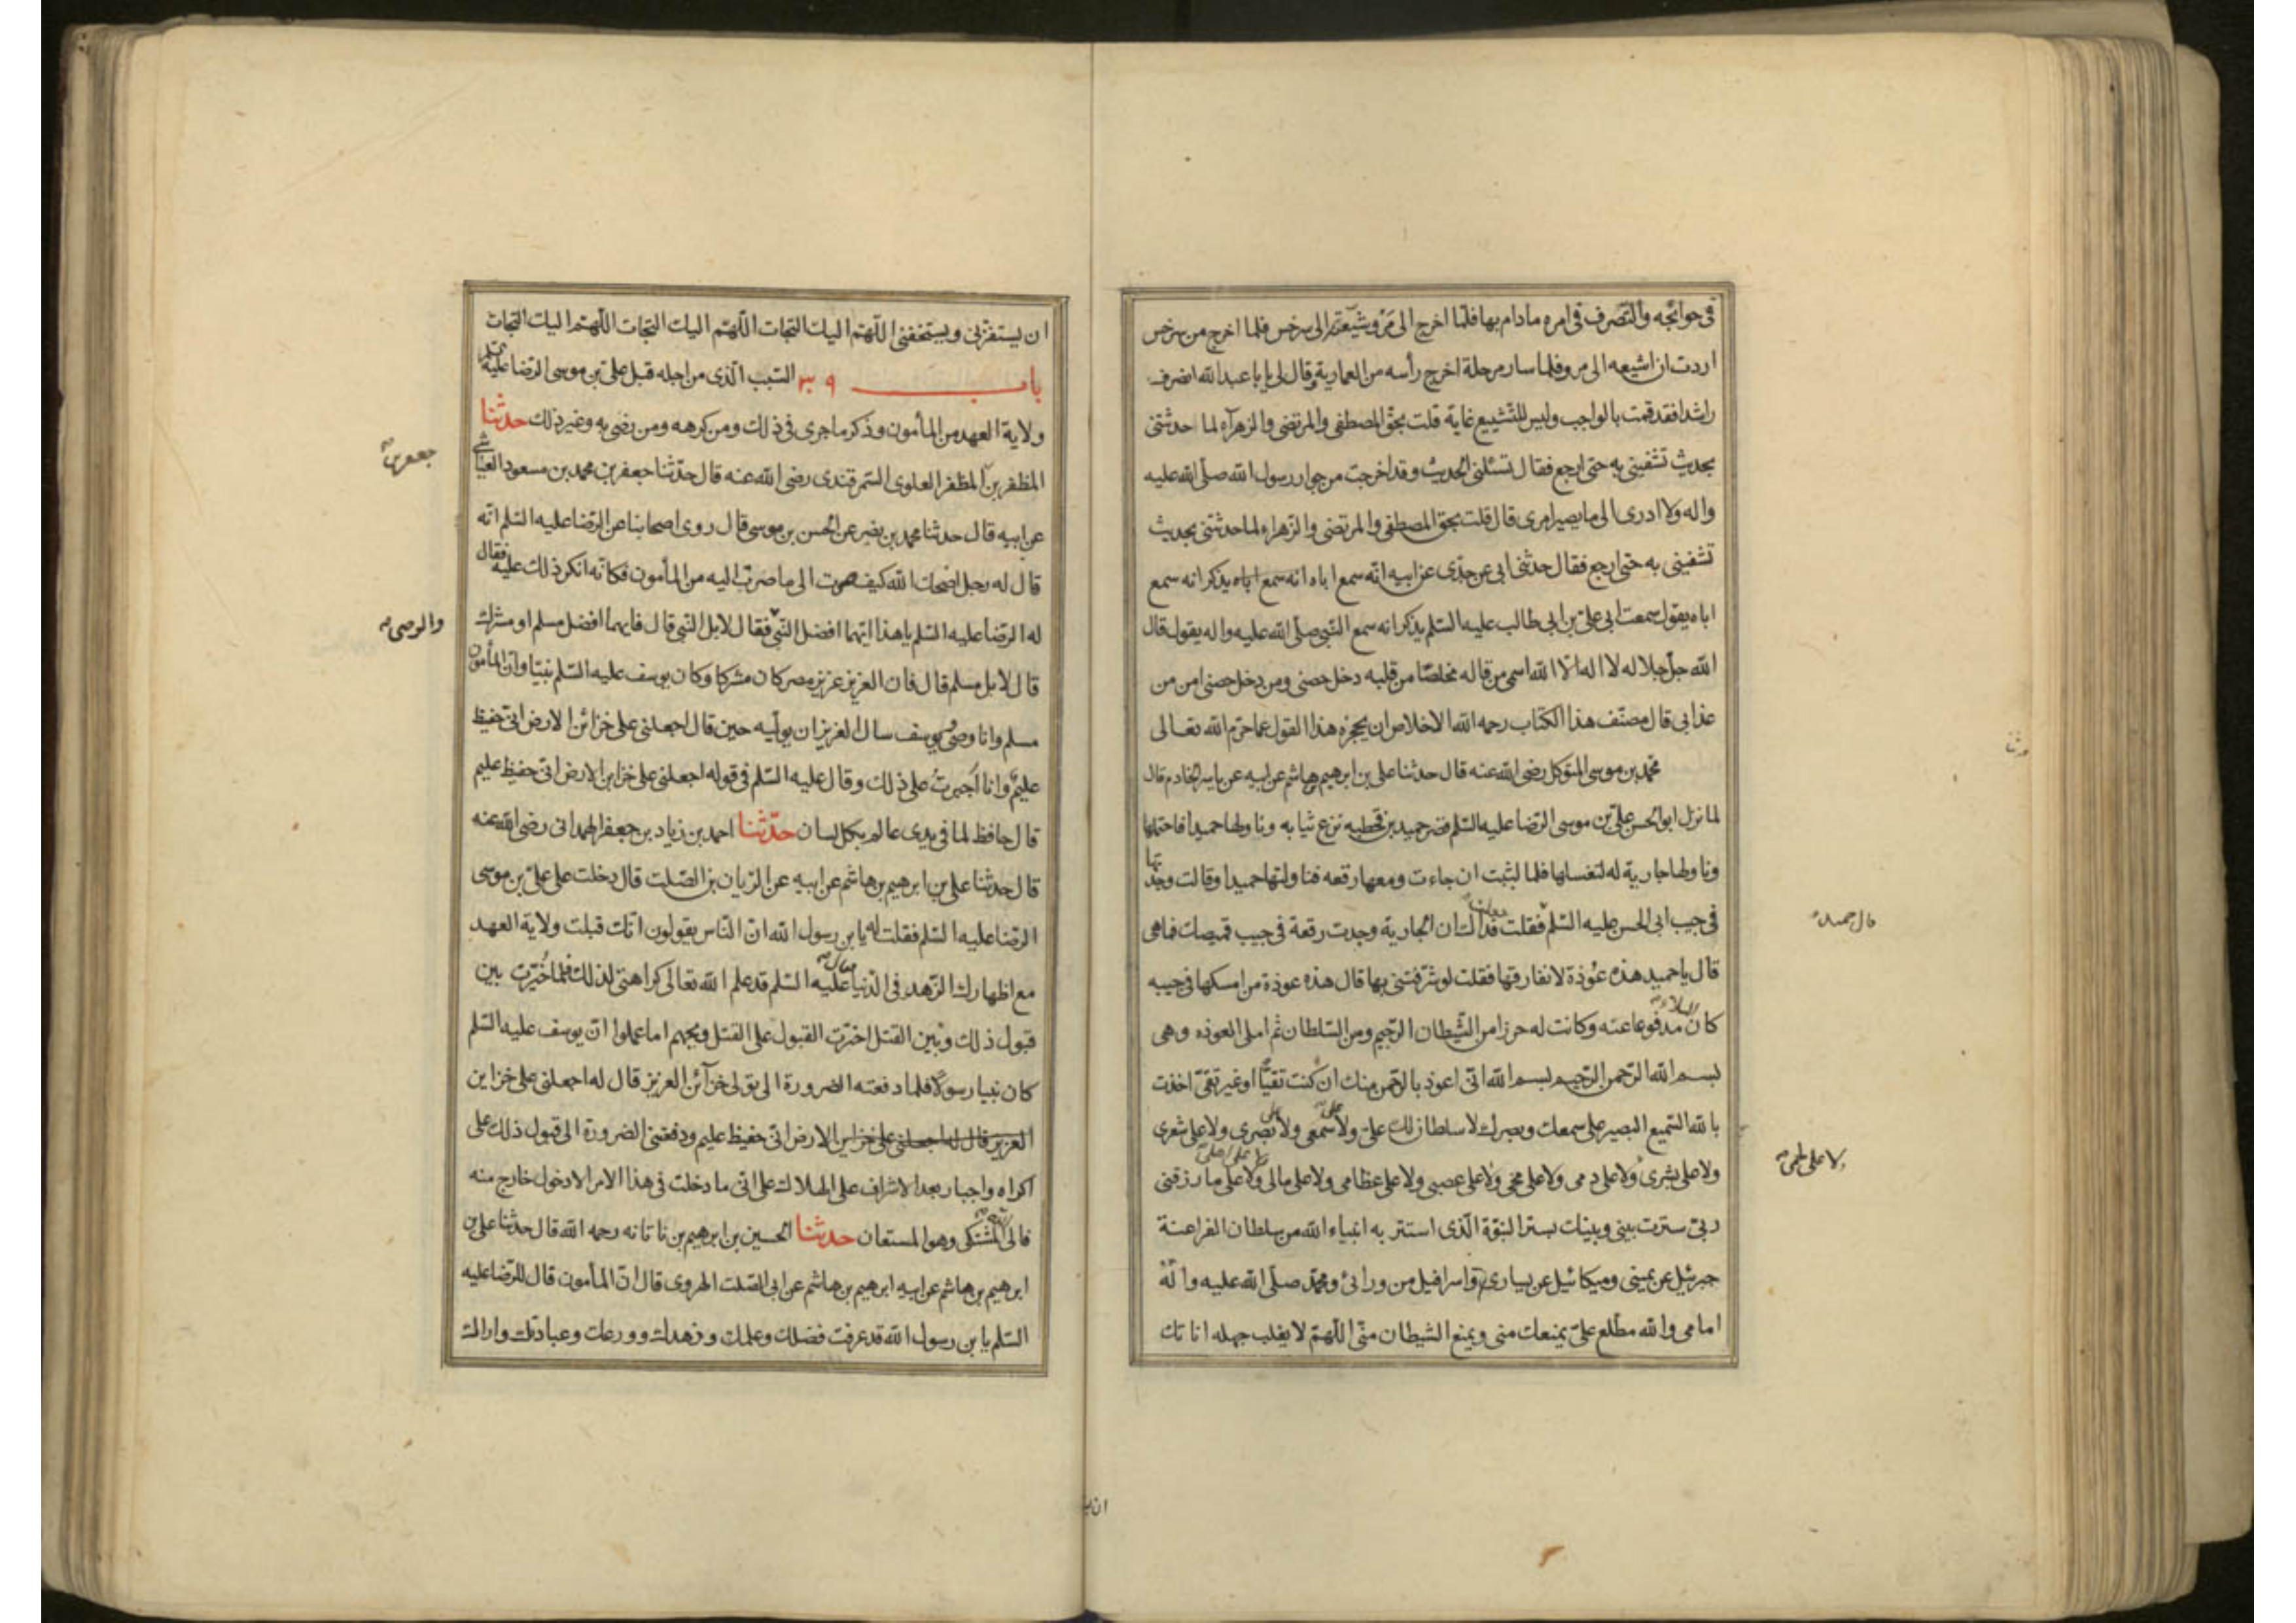 في حوائجه والتصرف في امره مادام بها فلما اخرج الى مرو شيعته الى سرخس فلما اخرج من سرخس
اردت ان اشيعه الى مرو فلما سار مرحلة اخرج رأسه من العمارية وقال لي يا با عبد الله انصرف
راشدا فقد قمت بالواجب وليس للتشييع غاية قلت بحق المصطفى والمرتضى والزهرآء لما حدثتنى
بحديث تشفينى به حتى ارجع فقال تسئلنى الحديث وقد اخرجت من جوار رسول الله صلى الله عليه
واله ولا ادرى الى ما يصير امرى قال قلت بحق المصطفى والمرتضى والزهراء لما حدثتنى بحديث
تشفينى به حتى ارجع فقال حدثنى ابى عن جدى عن ابيه انه سمع اباه انه سمع اباه يذكر انه سمع
اباه يقول سمعت ابى على بن ابى طالب عليه السلم يذكر انه سمع النبى صلى الله عليه واله يقول قال
الله جل جلاله لا اله الا الله اسمى من قاله مخلصا من قلبه دخل حصنى ومن دخل حصنى امن من
عذابى قال مصنف هذا الكتاب رحمه الله الاخلاص ان يحجزه هذا القول عما حرم الله تعالى
محمد بن موسى المتوكل رضى الله عنه قال حدثنا على بن ابرهيم بن هاشم عن ابيه عن ياسر الخادم قال
لما نزل ابو الحسن على بن موسى الرضا عليه السلم قصر حميد بن قحطبه نزع ثيابه وناولها حميدا فاحتملها
وناولها جارية له لتغسلها فلما لبثت ان جاءت ومعها رقعه فناولتها حميدا وقالت وجدتها
في جيب ابى الحسن عليه السلم فقلت جعلت فداك ان الجارية وجدت رقعة في جيب قميصك فما هى
قال حميد
قال يا حميد هذه عوذة لا نفارقها فقلت لو شرفتنى بها قال هذه عوذة من امسكها في جيبه
كان البلاء مدفوعا عنه وكانت له حرزا من الشيطان الرجيم ومن السلطان ثم املى العوذه وهى
بسم الله الرحمن الرحيم بسم الله انى اعوذ بالرحمن منك ان كنت تقيا او غير تقى اخذت
بالله السميع البصير على سمعك وبصرك لا سلطان لك على ولا على سمعى ولا على بصرى ولا على شعرى
ولا على بشرى ولا على دمى ولا على مخى ولا على عصبى ولا على عظامى ولا على مالى ولا على ما رزقنى
ولا على لحمى
ربى سترت بينى وبينك بستر النبوة الذى استتر به انبياء الله من سلطان الفراعنة
جبرئيل عن يمينى وميكائيل عن يسارى واسرافيل من ورائى ومحمد صلى الله عليه واله
امامى والله مطلع على يمنعك منى ويمنع الشيطان منى اللهم لا يغلب جهله اناتك
ان يستفزنى ويستخفنى اللهم اليك التجات اللهم اليك التجات اللهم اليك التجات
باب ٣٩ السبب الذى من اجله قبل على بن موسى الرضا عليه السلم
ولاية العهد من المأمون وذكر ما جرى في ذلك ومن كرهه ومن رضى به وغير ذلك حدثنا
المظفر بن المظفر العلوى السمرقندى رضى الله عنه قال حدثنا جعفر بن محمد بن مسعود العياشى
جعفر بن
عن ابيه قال حدثنا محمد بن نصير عن الحسن بن موسى قال روى اصحابنا عن الرضا عليه السلم انه
قال له رجل اصلحك الله كيف صرت الى ما صرت اليه من المأمون فكانه انكر ذلك عليه فقال
له الرضا عليه السلم يا هذا ايهما افضل النبى فقال لا بل النبى قال فايهما افضل مسلم او مشرك
قال لا بل مسلم قال فان العزيز عزيز مصر كان مشركا وكان يوسف عليه السلم نبيا وان المأمون
مسلم وانا وصى ويوسف سال العزيز ان يوليه حين قال اجعلنى على خزائن الارض انى حفيظ
عليم وانا اجبرت على ذلك وقال عليه السلم في قوله اجعلنى على خزاين الارض انى حفيظ عليم
قال حافظ لما في يدى عالم بكل لسان حدثنا احمد بن زياد بن جعفر الهمدانى رضى الله عنه
قال حدثنا على بن ابرهيم بن هاشم عن ابيه عن الريان بن الصلت قال دخلت على على بن موسى
الرضا عليه السلم فقلت له يا بن رسول الله ان الناس يقولون انك قبلت ولاية العهد
مع اظهارك الزهد في الدنيا فقال عليه السلم قد علم الله تعالى كراهتى لذلك فلما خيرت بين
قبول ذلك وبين القتل اخترت القبول على القتل ويحهم اما علموا ان يوسف عليه السلم
كان نبيا رسولا فلما دفعته الضرورة الى تولى خزآئن العزيز قال له اجعلنى على خزاين
العزيز قال له اجعلنى على خزاين الارض انى حفيظ عليم ودفعتنى الضرورة الى قبول ذلك على
اكراه واجبار بعد الاشراف على الهلاك على انى ما دخلت في هذا الامر الا دخول خارج منه
فالى الله المشتكى وهو المستعان حدثنا الحسين بن ابرهيم بن ناتانه رحمه الله قال حدثنا على بن
ابرهيم بن هاشم عن ابيه ابرهيم بن هاشم عن ابى الصلت الهروى قال ان المأمون قال للرضا عليه
السلم يا بن رسول الله قد عرفت فضلك وعلمك وزهدك وورعك وعبادتك واراك